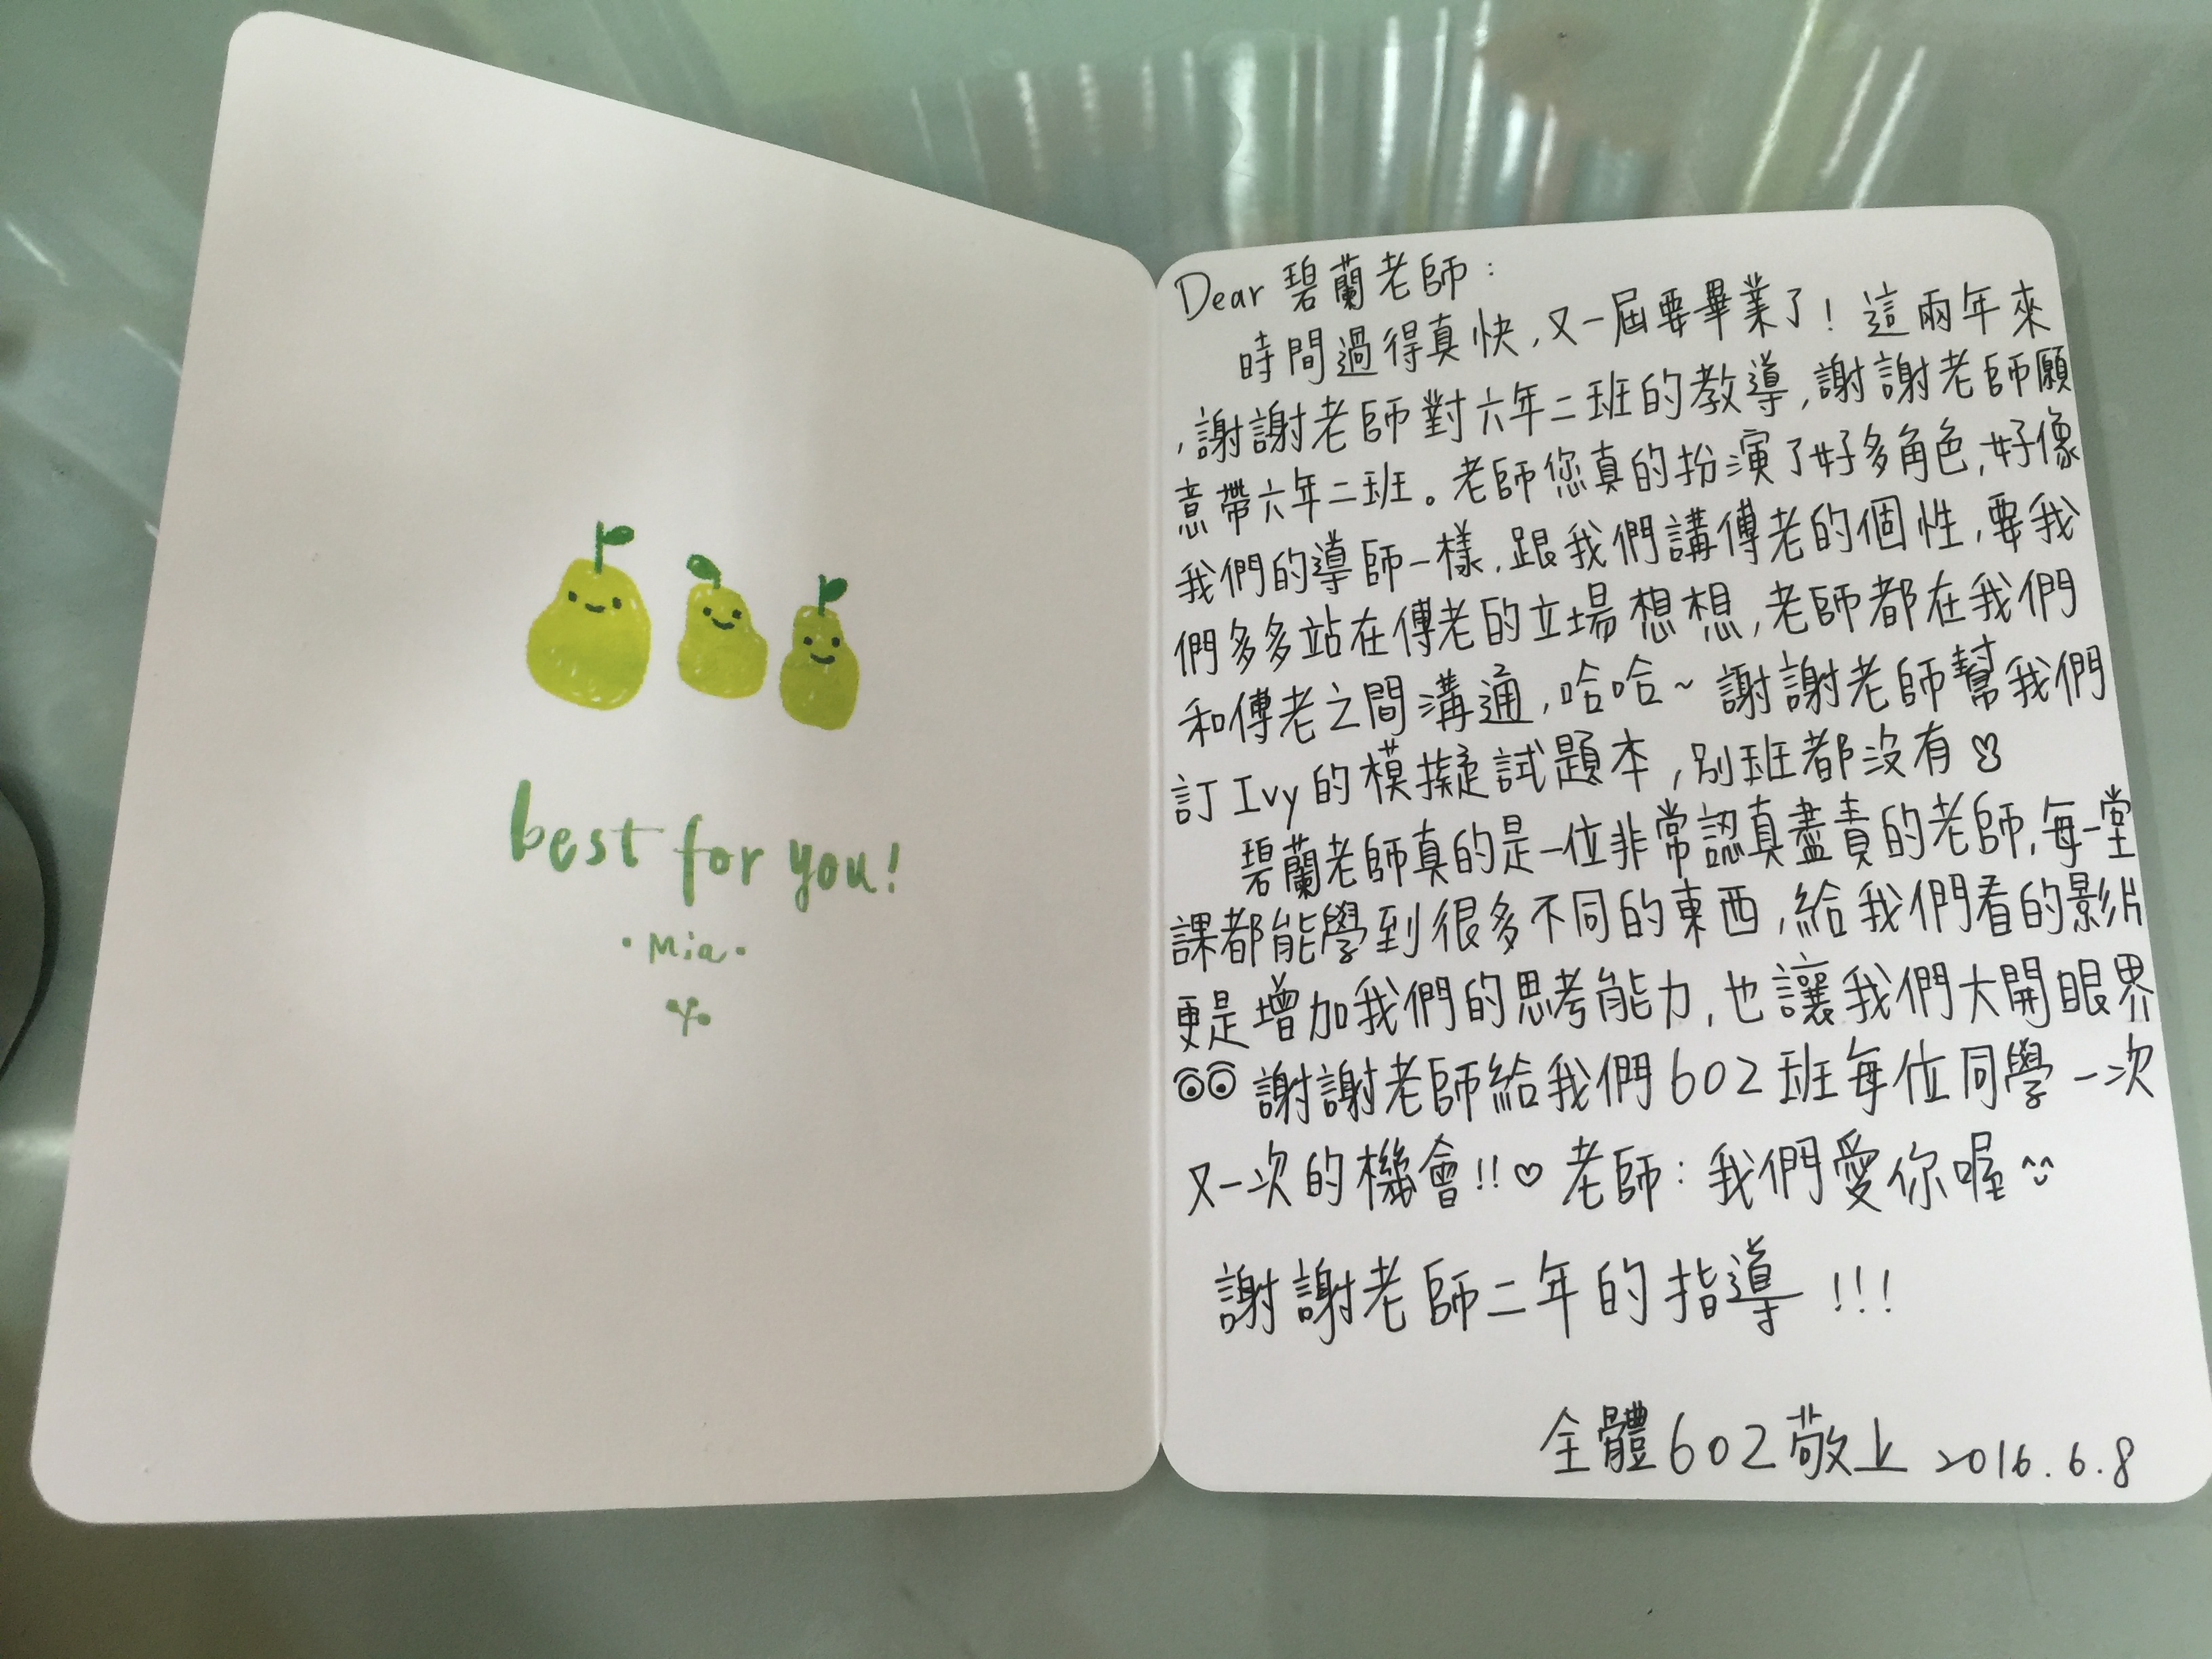 best for you!
·Mia·
Dear 碧蘭老師：
時間過得真快,又一屆要畢業了！這兩年來
,謝謝老師對六年二班的教導,謝謝老師願
意帶六年二班。老師您真的扮演了好多角色,好像
我們的導師一樣,跟我們講傅老的個性,要我
們多多站在傅老的立場想想,老師都在我們
和傅老之間溝通,哈哈~謝謝老師幫我們
訂Ivy的模擬試題本,別班都沒有
碧蘭老師真的是一位非常認真盡責的老師,每一堂
課都能學到很多不同的東西,給我們看的影片
更是增加我們的思考能力,也讓我們大開眼界
謝謝老師給我們602班每位同學一次
又一次的機會!!♡老師：我們愛你喔^^
謝謝老師二年的指導!!!
全體602敬上 2016.6.8